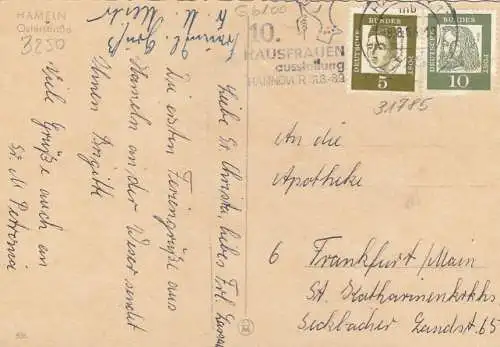 HAMELN
Osterstraße
3250
G 6200
10.
HAUSFRAUEN
ausstellung
HANNOVER
DEUTSCHE BUNDES POST
5
DEUTSCHE BUNDES POST
10
31785
Liebe Sr. Christa, liebes Frl.
Die ersten Feriengrüße aus
Hameln an der Weser sendet
Ihnen Brigitte
Viele Grüße auch an
Sr. M. Petronia
An die
Apotheke
6 Frankfurt/Main
St. Katharinenkrkhs
Seckbacher Landstr. 65